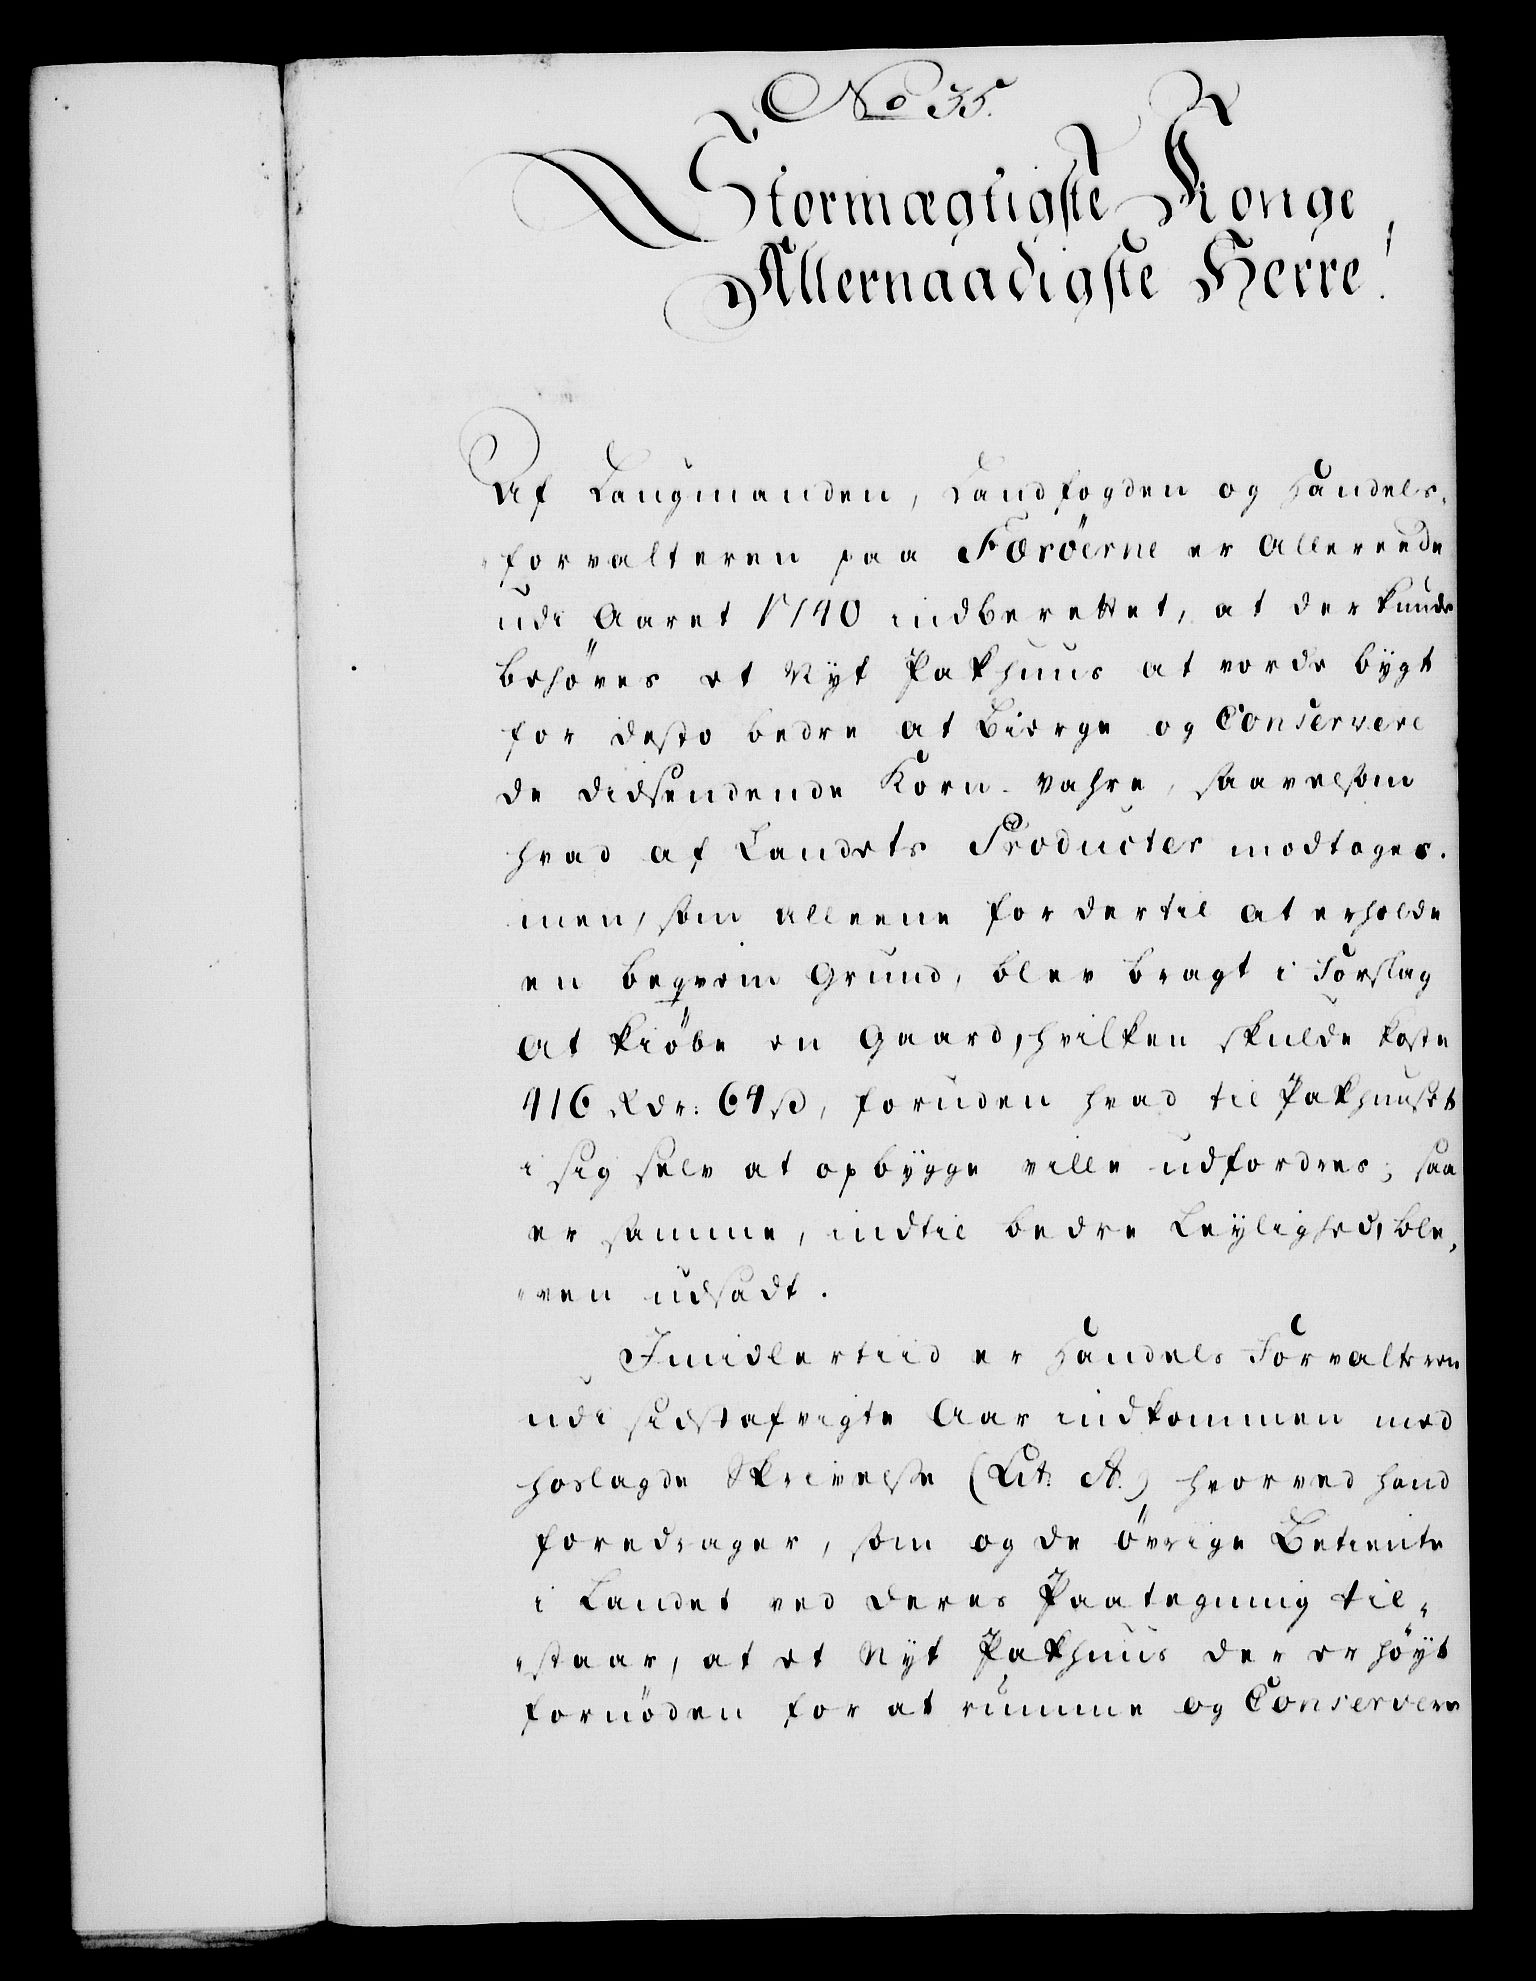 No 35.
Stormægtigste Konge
Allernaadigste Herre!
Af Laugmanden, Landfogden og Handels-
forvalteren paa Færöerne er Allereede
udi Aaret 1740 indberettet, at der kunde
behöves et Nyt Pakhuus at vorde bygt
for desto bedre at Bierge og Conservere
de didsendende Korn-Vahre, saavelsom
hvad af Landets Producter modtages.
men, som alleene for dertil at erholde
en beqvem Grund, blev bragt i Forslag
at kiöbe en Gaard, hvilken skulde koste
416 Rdr: 64 ß, foruden hvad til Pakhuuset
i sig selv at opbygge ville udfordres; saa
er samme, indtil bedre Leylighed, ble-
ven udsadt.
Imidlertiid er Handels Forvalteren
udi sidstafvigte Aar indkommen med
hoslagde Skrivelse (Lit: A.) hvorved hand
foredrager, som og de övrige Betiente
i Landet ved deres Paategning til-
staar, at et Nyt Pakhuus der er höyt
fornöden for at rumme og Conservere